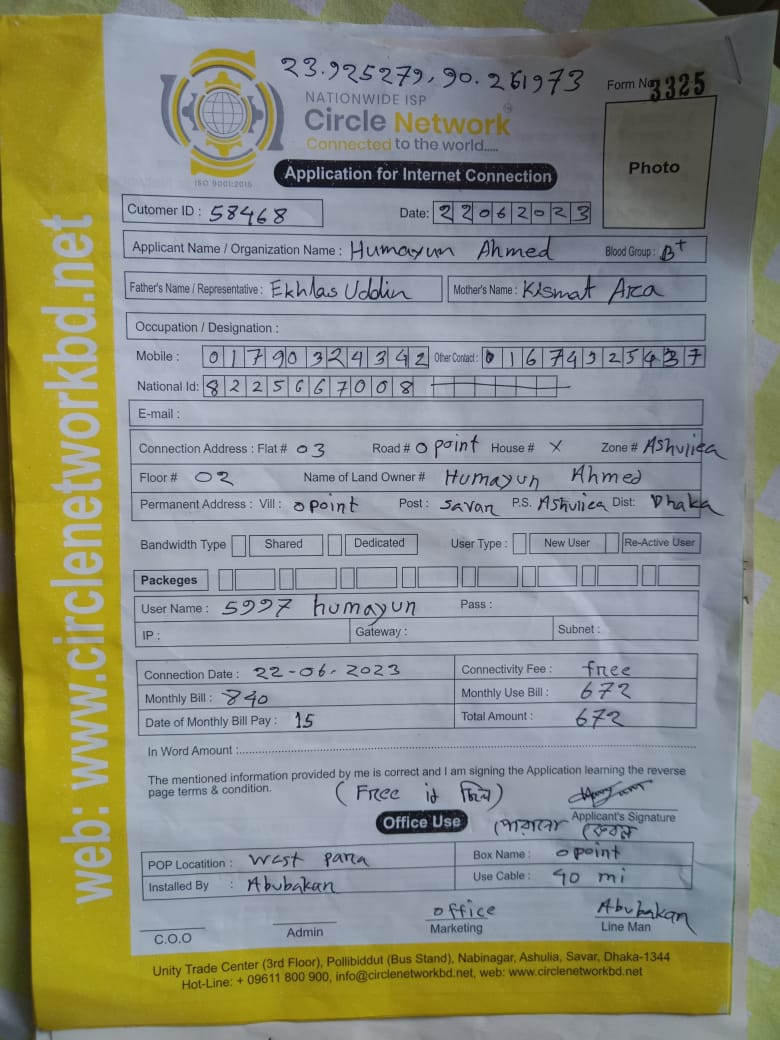 23.925279, 90.261973
NATIONWIDE ISP
Circle Network
Connected to the world.....
ISO 9001:2015
Form No 3325
Photo
Application for Internet Connection
Cutomer ID : 58468 Date: 22062023
Applicant Name / Organization Name : Humayun Ahmed Blood Group : B+
Father's Name / Representative : Ekhlas Uddin Mother's Name : Kismat Ara
Occupation / Designation :
Mobile : 01790324342 Other Contact :
National Id: 8225667008
E-mail :
Connection Address : Flat # 03 Road # 0 point House # X Zone # Ashuliea
Floor # 02 Name of Land Owner # Humayun Ahmed
Permanent Address : Vill : 0 point Post : Savar P.S. Ashuliea Dist: Dhaka
Bandwidth Type Shared Dedicated User Type : New User Re-Active User
Packeges
User Name : 5997 humayun Pass :
IP : Gateway : Subnet :
Connection Date : 22-06-2023 Connectivity Fee : free
Monthly Bill : 840 Monthly Use Bill : 672
Date of Monthly Bill Pay : 15 Total Amount : 672
In Word Amount :
The mentioned information provided by me is correct and I am signing the Application learning the reverse
page terms & condition. (Free
Applicant's Signature
Office Use
POP Locatition : West para Box Name : 0 point
Installed By : Abubakar Use Cable : 40 mi
C.O.O Admin office Marketing Abubakar Line Man
Unity Trade Center (3rd Floor), Pollibiddut (Bus Stand), Nabinagar, Ashulia, Savar, Dhaka-1344
Hot-Line: + 09611 800 900, info@circlenetworkbd.net, web: www.circlenetworkbd.net
web: www.circlenetworkbd.net